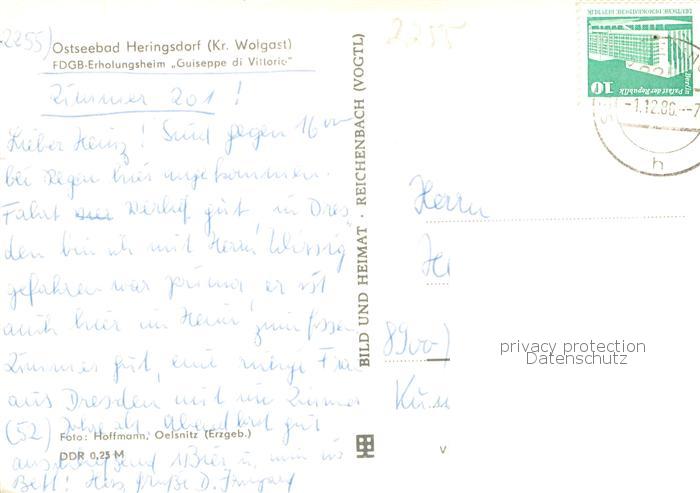 2255)
Ostseebad Heringsdorf (Kr. Wolgast)
FDGB-Erholungsheim „Guiseppe di Vittorio"
Zimmer 201!
Lieber Heinz! Sind gegen 16 00
bei Regen hier angekommen.
Fahrt verlief gut, in Dres-
den bin ich mit Herrn
gefahren war prima, er ist
auch hier im Heim,
Zimmer gut, eine Frau
aus Dresden mit im Zimmer
(52) Jahre alt, Abendbrot gut
anschließend 1 Bier u. nun ins
Bett! Herz. Grüße D.
Foto: Hoffmann, Oelsnitz (Erzgeb.)
DDR 0,25 M
BILD UND HEIMAT · REICHENBACH (VOGTL)
V
2255
DEUTSCHE DEMOKRATISCHE REPUBLIK
Berlin
Palast der Republik
10
-1.12.86.--7
h
Herrn
8900)
privacy protection
Datenschutz